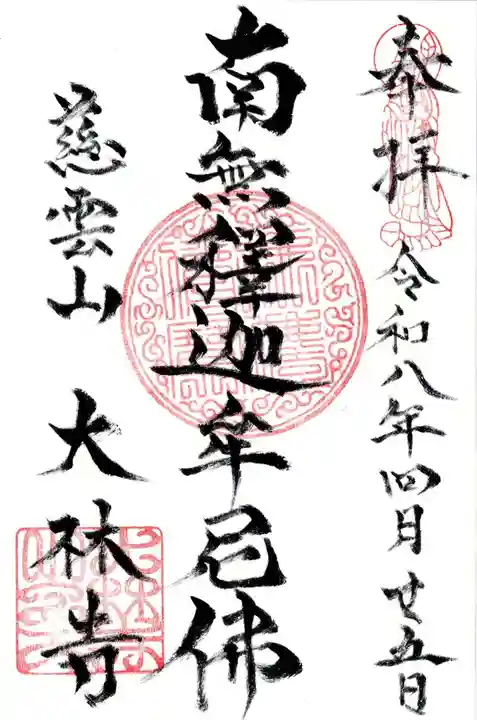 奉拝 令和八年四月廿五日
南無釋迦牟尼佛
慈雲山 大林寺